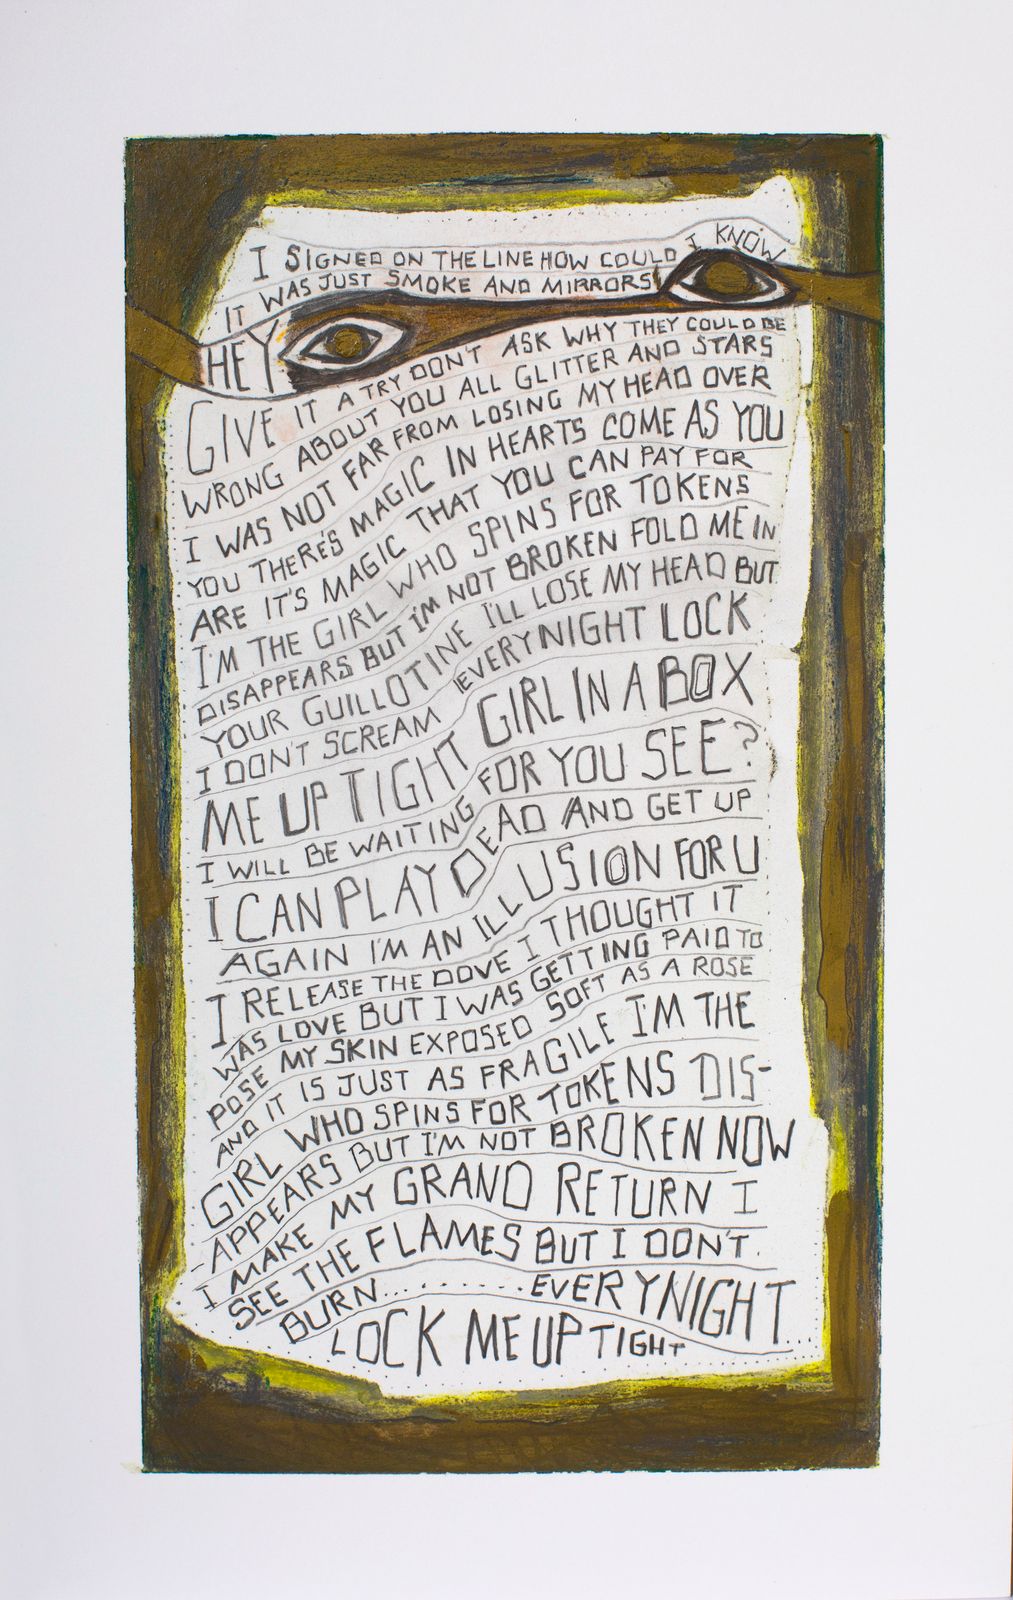 I SIGNED ON THE LINE HOW COULD I KNOW
IT WAS JUST SMOKE AND MIRRORS
HEY
GIVE IT A TRY DON'T ASK WHY THEY COULD BE
WRONG ABOUT YOU ALL GLITTER AND STARS
I WAS NOT FAR FROM LOSING MY HEAD OVER
YOU THERE'S MAGIC IN HEARTS COME AS YOU
ARE IT'S MAGIC THAT YOU CAN PAY FOR
I'M THE GIRL WHO SPINS FOR TOKENS
DISAPPEARS BUT I'M NOT BROKEN FOLD ME IN
YOUR GUILLOTINE I'LL LOSE MY HEAD BUT
I DON'T SCREAM EVERYNIGHT LOCK
ME UP TIGHT GIRL IN A BOX
I WILL BE WAITING FOR YOU SEE?
I CAN PLAY DEAD AND GET UP
AGAIN I'M AN ILLUSION FOR U
I RELEASE THE DOVE I THOUGHT IT
WAS LOVE BUT I WAS GETTING PAID TO
POSE MY SKIN EXPOSED SOFT AS A ROSE
AND IT IS JUST AS FRAGILE I'M THE
GIRL WHO SPINS FOR TOKENS DIS-
-APPEARS BUT I'M NOT BROKEN NOW
I MAKE MY GRAND RETURN I
SEE THE FLAMES BUT I DON'T
BURN.......... EVERYNIGHT....
LOCK ME UP TIGHT